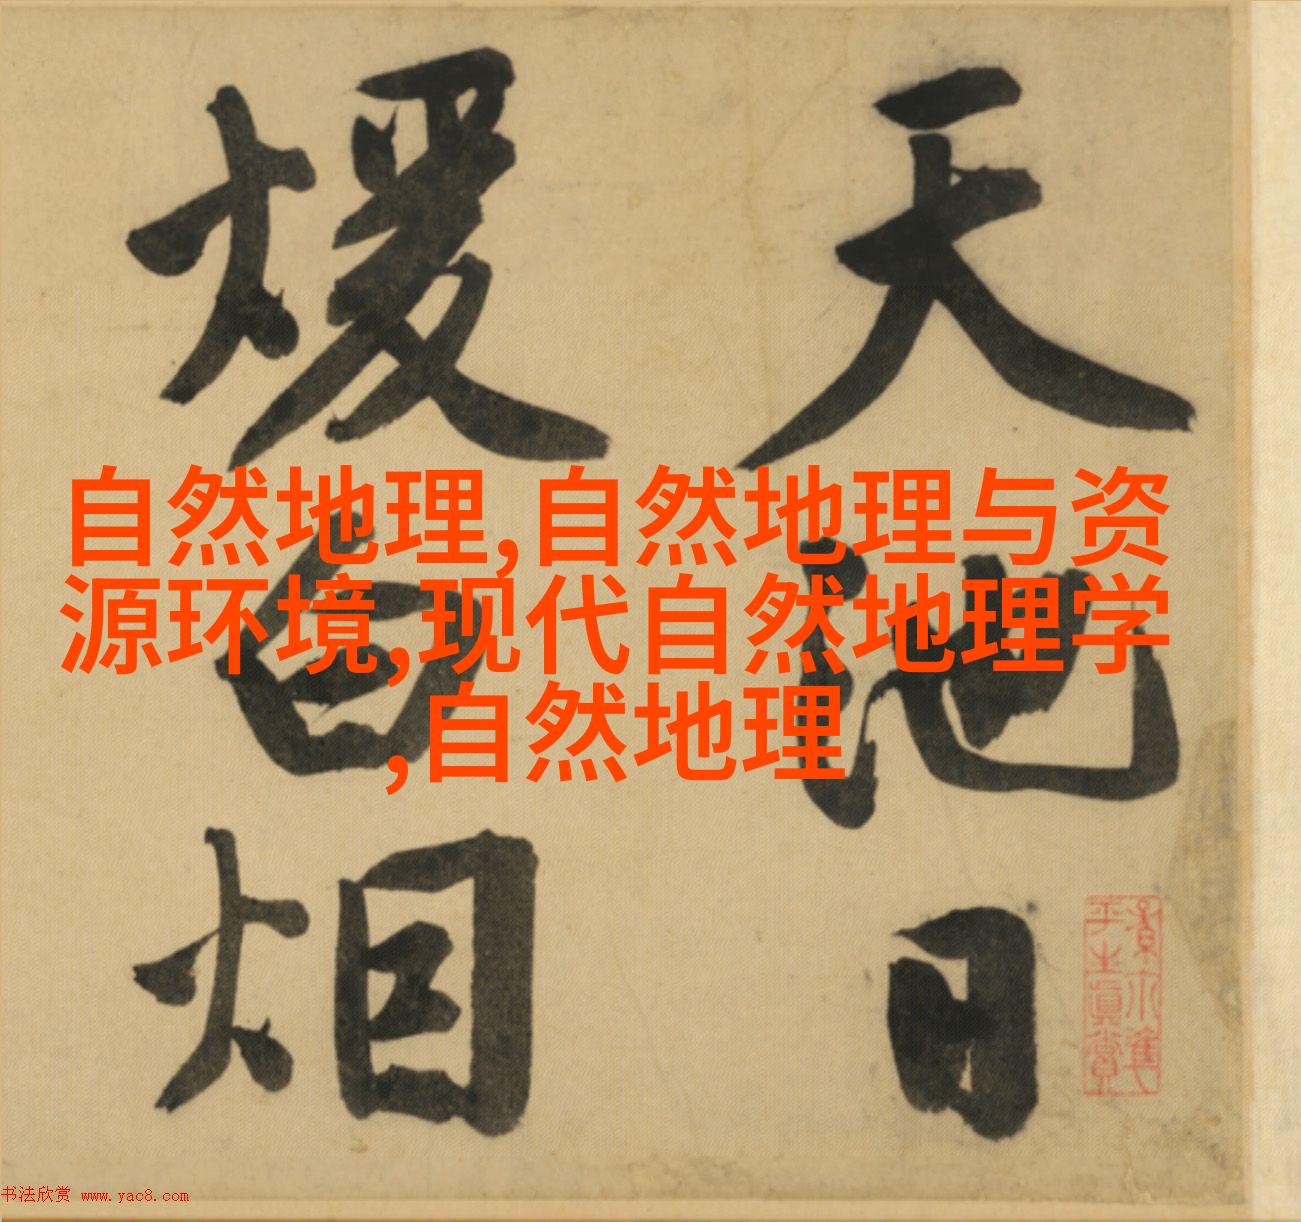 天池日
煖白烟
自然地理,自然地理与资
源环境,现代自然地理学
,自然地理
平生真賞
书法欣赏 www.yac8.com